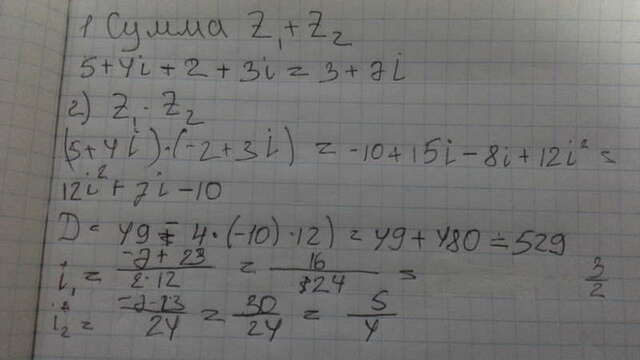 1 Сумма Z₁ + Z₂
5+4i+2+3i = 3+7i
2) Z₁ · Z₂
(5+4i)·(-2+3i) = -10+15i-8i+12i² =
12i²+7i-10
D = 49 - 4·(-10)·12) = 49+480 = 529
i₁ = (-7+23)/(2·12) = 16/24 = 3/2
i₂ = (-7-23)/24 = 30/24 = 5/4